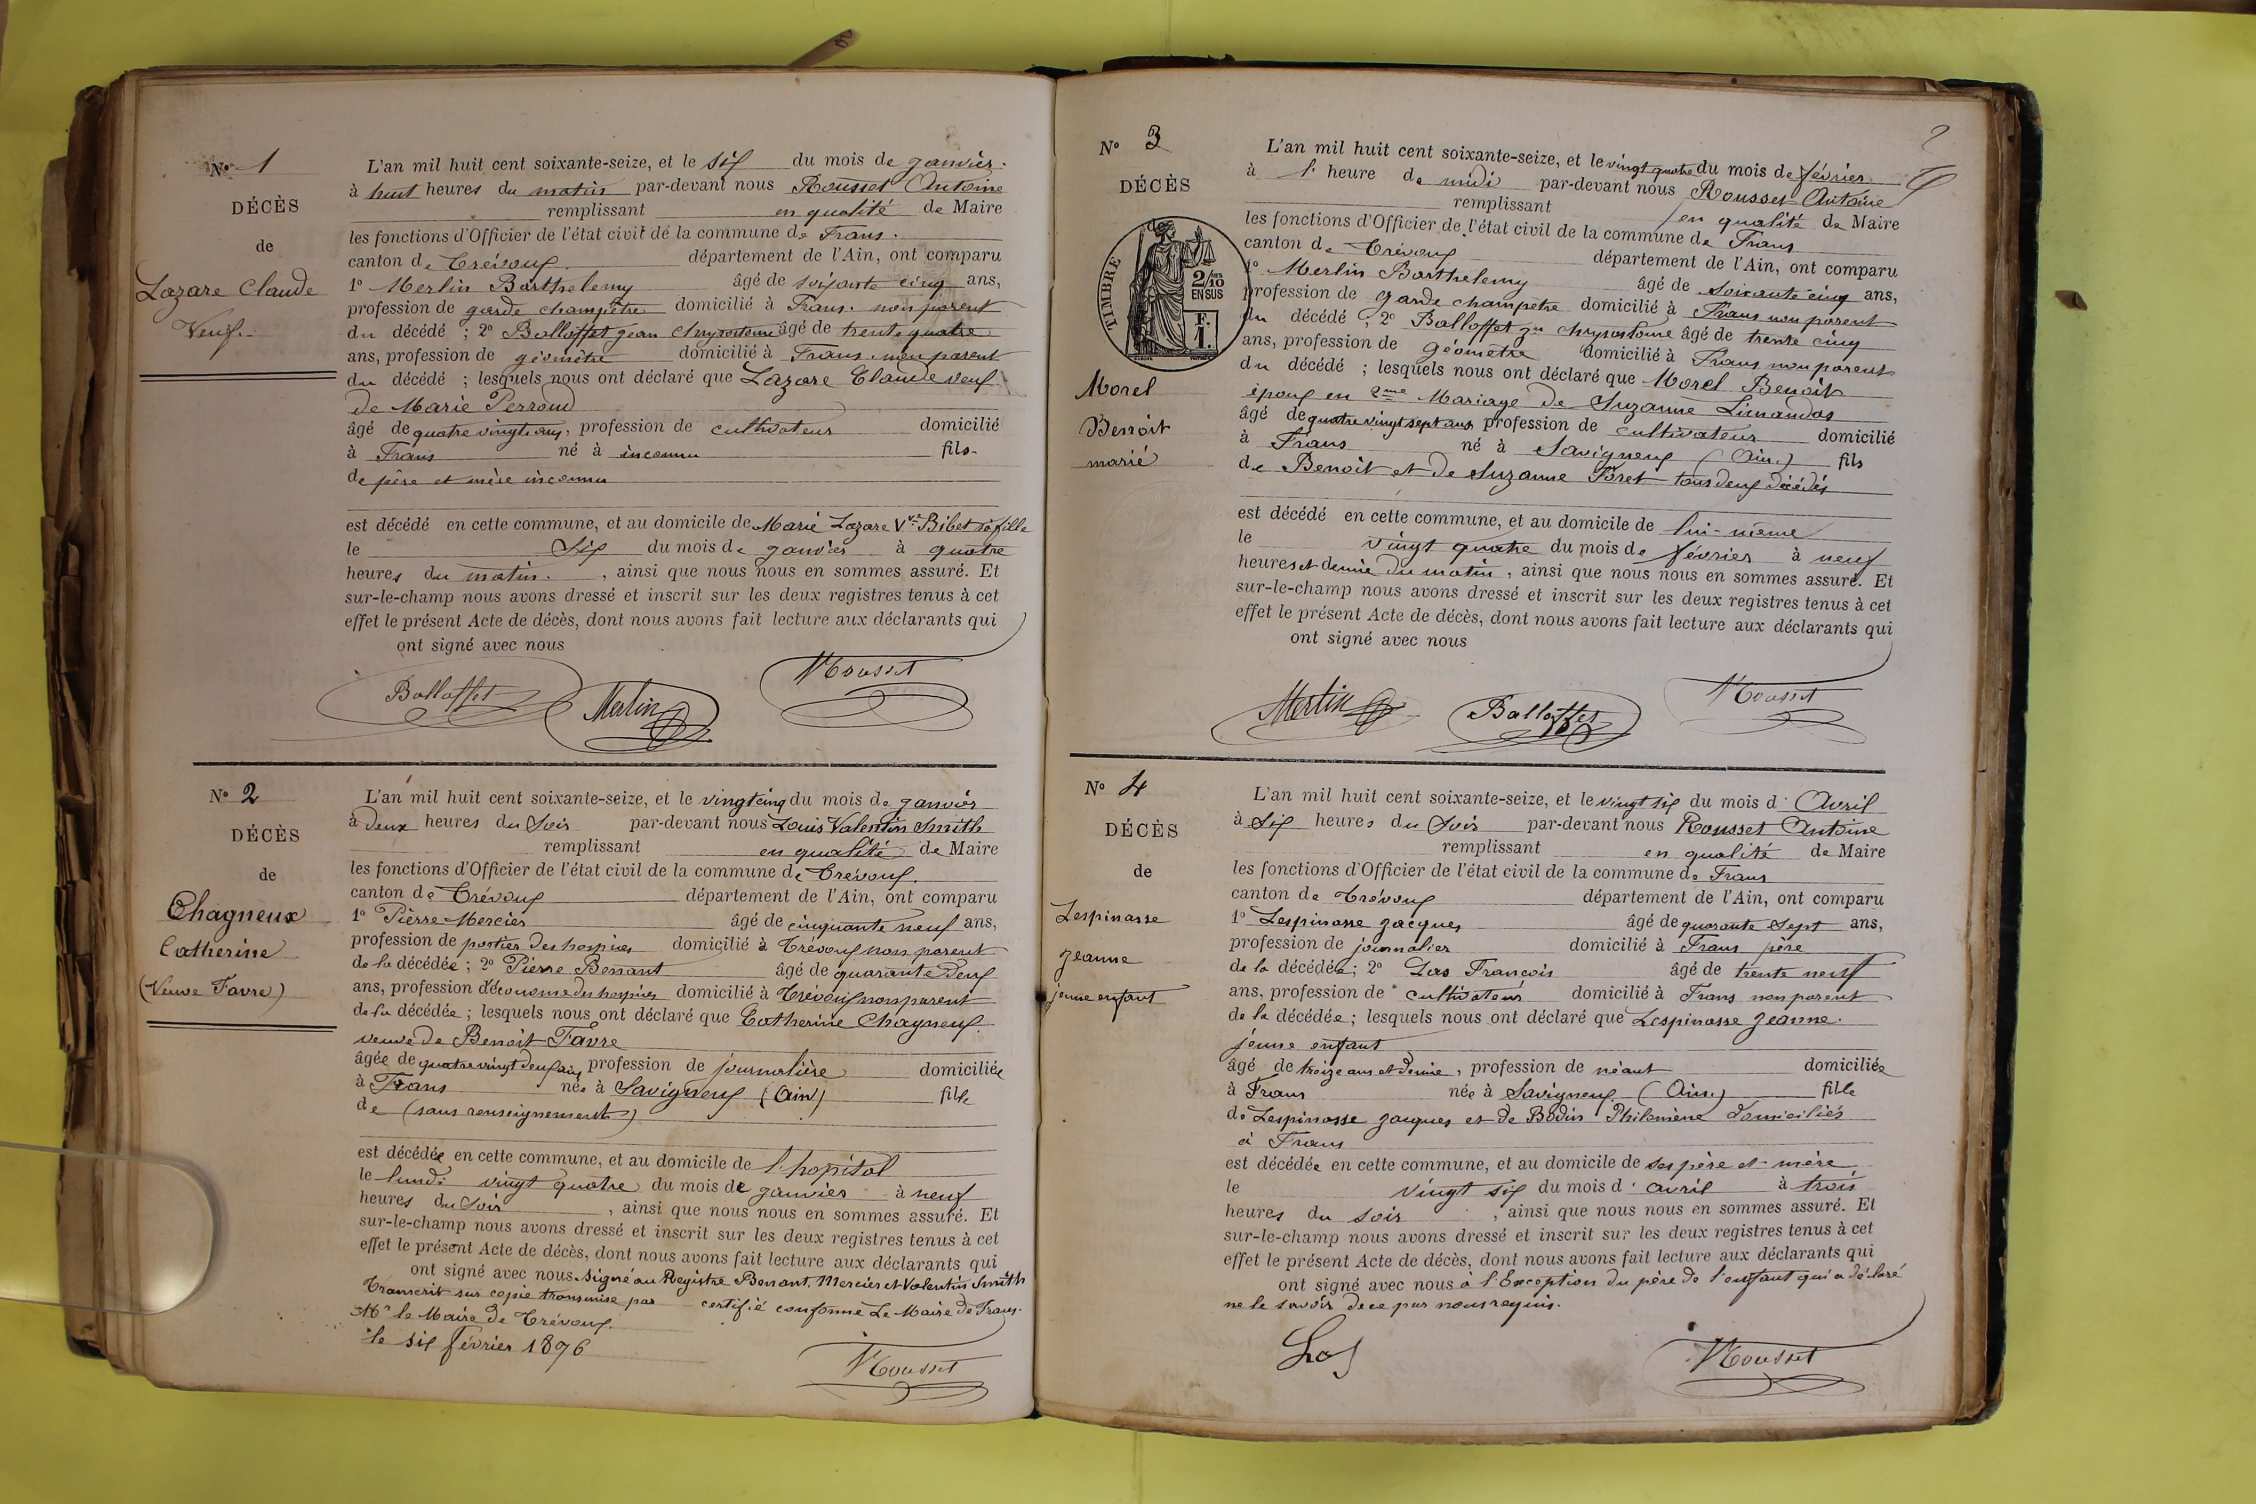 N° 1
DÉCÈS
de
Lazare Claude
Veuf
L'an mil huit cent soixante-seize, et le six du mois de Janvier
à huit heures du matin par-devant nous Rousset Antoine
remplissant en qualité de Maire
les fonctions d'Officier de l'état civil de la commune de Frans.
canton de Trévoux département de l'Ain, ont comparu
1° Merlin Barthelemy âgé de soixante cinq ans,
profession de garde champêtre domicilié à Frans. non parent
du décédé ; 2° Balloffet Jean Chrysostome âgé de trente quatre
ans, profession de géomètre domicilié à Frans. non parent
du décédé ; lesquels nous ont déclaré que Lazare Claude veuf
de Marie Perroud
âgé de quatre vingt ans, profession de cultivateur domicilié
à Frans né à inconnu fils
de père et mère inconnu
est décédé en cette commune, et au domicile de Marie Lazare Vve Bibet sa fille
le six du mois de Janvier à quatre
heures du matin. , ainsi que nous nous en sommes assuré. Et
sur-le-champ nous avons dressé et inscrit sur les deux registres tenus à cet
effet le présent Acte de décès, dont nous avons fait lecture aux déclarants qui
ont signé avec nous
Balloffet Merlin Rousset
N° 2
DÉCÈS
de
Chagneux
Catherine
(Veuve Favre)
L'an mil huit cent soixante-seize, et le vingt cinq du mois de Janvier
à deux heures du soir par-devant nous Louis Valentin Smith
remplissant en qualité de Maire
les fonctions d'Officier de l'état civil de la commune de Trévoux.
canton de Trévoux département de l'Ain, ont comparu
1° Pierre Mercier âgé de cinquante neuf ans,
profession de portier des hospices domicilié à Trévoux non parent
de la décédée ; 2° Pierre Benant âgé de quarante deux
ans, profession d'économe des hospices domicilié à Trévoux non parent
de la décédée ; lesquels nous ont déclaré que Catherine Chagneux
veuve de Benoit Favre
âgée de quatre vingt deux ans profession de journalière domiciliée
à Frans née à Savigneux (Ain) fille
de (sans renseignements)
est décédée en cette commune, et au domicile de l'hopital
le lundi vingt quatre du mois de Janvier à neuf
heures du soir , ainsi que nous nous en sommes assuré. Et
sur-le-champ nous avons dressé et inscrit sur les deux registres tenus à cet
effet le présent Acte de décès, dont nous avons fait lecture aux déclarants qui
ont signé avec nous. Signé au Registre Benant, Mercier et Valentin Smith
Transcrit sur copie transmise par certifié conforme Le Maire de Frans.
Mr le Maire de Trévoux.
le six février 1876
Rousset
N° 3
DÉCÈS
de
TIMBRE
2/10
EN SUS
F.
1.
Morel
Benoit
marié
2
L'an mil huit cent soixante-seize, et le vingt quatre du mois de février
à l' heure de midi par-devant nous Rousset Antoine
remplissant en qualité de Maire
les fonctions d'Officier de l'état civil de la commune de Frans
canton de Trévoux département de l'Ain, ont comparu
1° Merlin Barthelemy âgé de soixante cinq ans,
profession de garde champetre domicilié à Frans non parent
du décédé ; 2° Balloffet Jn Chrysostome âgé de trente cinq
ans, profession de géomètre domicilié à Frans non parent
du décédé ; lesquels nous ont déclaré que Morel Benoit
époux en 2me Mariage de Suzanne Limandas
âgé de quatre vingt sept ans profession de cultivateur domicilié
à Frans né à Savigneux (Ain.) fils
de Benoit et de Suzanne Foret tous deux décédés
est décédé en cette commune, et au domicile de lui-même
le vingt quatre du mois de février à neuf
heures et demie du matin , ainsi que nous nous en sommes assuré. Et
sur-le-champ nous avons dressé et inscrit sur les deux registres tenus à cet
effet le présent Acte de décès, dont nous avons fait lecture aux déclarants qui
ont signé avec nous
Merlin Balloffet Rousset
N° 4
DÉCÈS
de
Lespinasse
Jeanne
jeune enfant
L'an mil huit cent soixante-seize, et le vingt six du mois d' Avril
à six heures du soir par-devant nous Rousset Antoine
remplissant en qualité de Maire
les fonctions d'Officier de l'état civil de la commune de Frans
canton de Trévoux département de l'Ain, ont comparu
1° Lespinasse Jacques âgé de quarante sept ans,
profession de journalier domicilié à Frans père
de la décédée ; 2° Las François âgé de trente neuf
ans, profession de cultivateur domicilié à Frans non parent
de la décédée ; lesquels nous ont déclaré que Lespinasse Jeanne.
jeune enfant
âgé de treize ans et demie , profession de néant domiciliée
à Frans née à Savigneux (Ain.) fille
de Lespinasse Jacques et de Bodin Philomène domiciliés
à Frans
est décédée en cette commune, et au domicile de ses père et mère
le vingt six du mois d' avril à trois
heures du soir , ainsi que nous nous en sommes assuré. Et
sur-le-champ nous avons dressé et inscrit sur les deux registres tenus à cet
effet le présent Acte de décès, dont nous avons fait lecture aux déclarants qui
ont signé avec nous à l'Exception du père de l'enfant qui a déclaré
ne le savoir de ce par nous requis.
Las Rousset